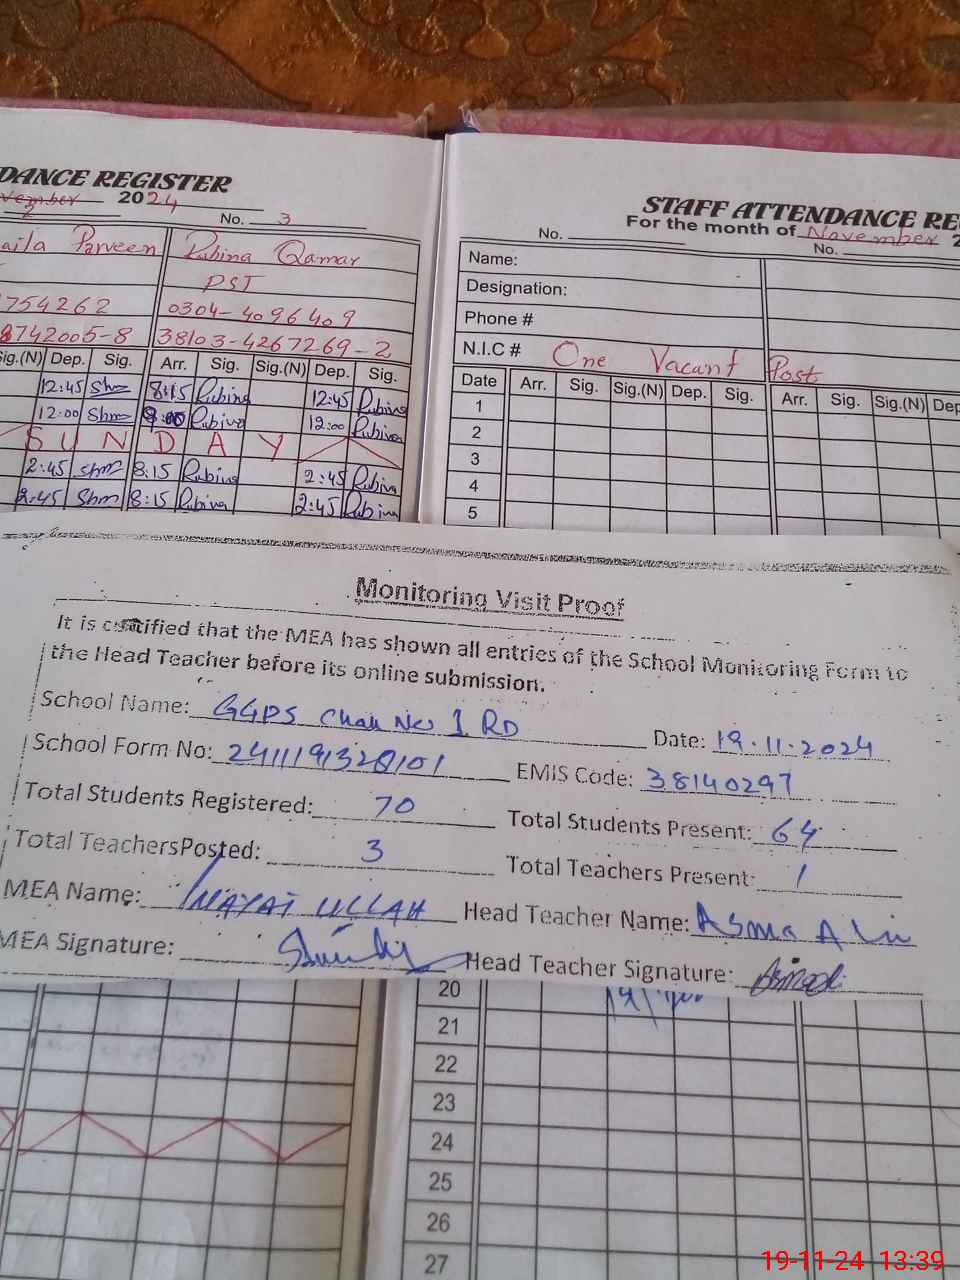 DANCE REGISTER
vember 2024
No. 3
aila Parveen Rubina Qamar
PST
754262 0304-4096409
8742005-8 38103-4267269-2
Sig.(N) Dep. Sig. Arr. Sig. Sig.(N) Dep. Sig.
12:45 Shm 8:15 Rubina 12:45 Rubina
12:00 Shm 8:00 Rubina 12:00 Rubina
SUNDAY
2:45 Shm 8:15 Rubina 2:45 Rubina
2:45 Shm 8:15 Rubina 2:45 Rubina
STAFF ATTENDANCE RE
For the month of November 2
No. No.
Name:
Designation:
Phone #
N.I.C # One Vacant Post
Date Arr. Sig. Sig.(N) Dep. Sig. Arr. Sig. Sig.(N) Dep
1
2
3
4
5
Monitoring Visit Proof
It is certified that the MEA has shown all entries of the School Monitoring Form to
the Head Teacher before its online submission.
School Name: GGPS Chak No 1 RD Date: 19.11.2024
School Form No: 2411191328101 EMIS Code: 38140297
Total Students Registered: 70 Total Students Present: 64
Total TeachersPosted: 3 Total Teachers Present: 1
MEA Name: INAYAT ULLAH Head Teacher Name: Asma Ali
MEA Signature: Head Teacher Signature:
20
21
22
23
24
25
26
27
19-11-24 13:39